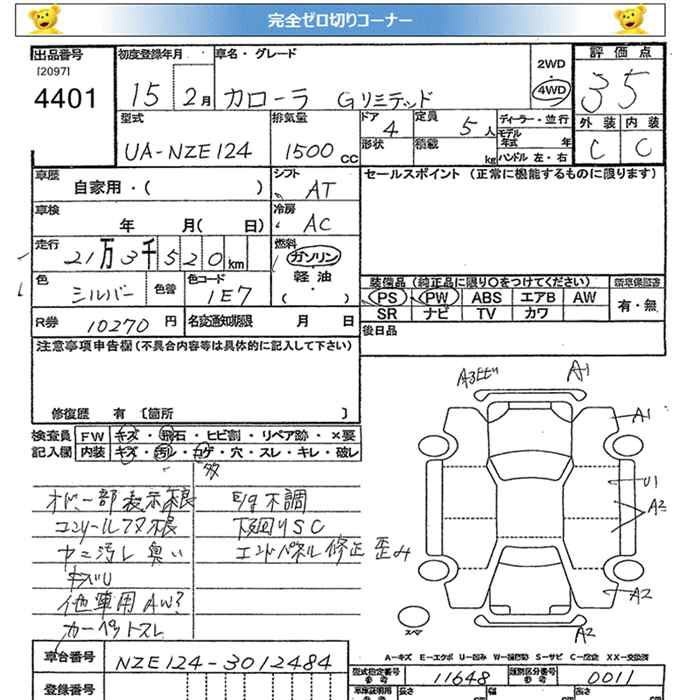 完全ゼロ切りコーナー
出品番号 初度登録年月 車名・グレード 2WD 評価点
[2097] 4WD
4401 15 2月 カローラ Gリミテッド 35
型式 排気量 ドア 定員 ディーラー・並行 外装 内装
4 5人 モデル年式 年
UA-NZE124 1500cc 形状 積載 kg ハンドル 左・右 C C
車歴 シフト セールスポイント (正常に機能するものに限ります)
自家用・( ) AT
車検 冷房
年 月( 日) AC
走行 燃料
21万3千520km ガソリン
色 色替 色コード 軽油 装備品 (純正品に限り○をつけてください) 新車保証書
シルバー 1E7 ( ・ ) PS PW ABS エアB AW 有・無
R券 10270円 名変通知期限 月 日 SR ナビ TV カワ
注意事項申告欄(不具合内容等は具体的に記入して下さい) 後日品
修復歴 有 [箇所 ]
検査員 FW キズ・飛石・ヒビ割・リペア跡・×要
記入欄 内装 キズ・汚レ・コゲ・穴・スレ・キレ・破レ
多
A3ヒビ A-1
A1
オドー部表示不良 E/g不調
U1
コンソールフタ不良 下廻りSC
A2
ヤニ汚レ臭い エンドパネル修正歪み
キバリ
他車用AW?
A2
カーペットスレ
スペア A2
A-キズ E-エクボ U-凹み W-補修跡 S-サビ C-腐食 XX-交換済
車台番号 NZE124-3012484 型式指定番号 参考 11648 類別区分番号 参考 0011
登録番号 車庫証明用 参考 長さ 幅 高さ